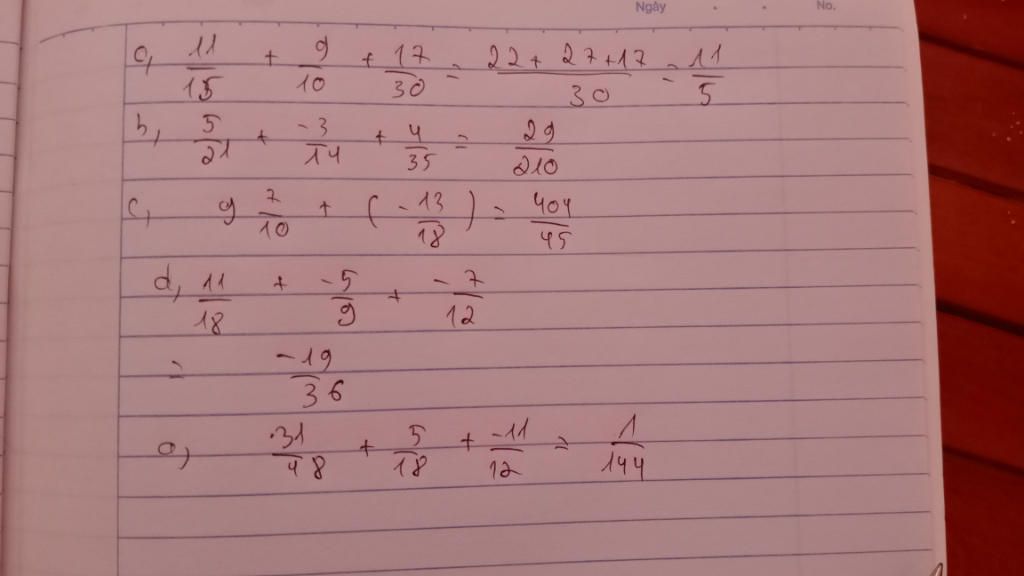 Ngày No.
a, 11/15 + 9/10 + 17/30 = 22 + 27 + 17/30 = 11/5
b, 5/21 + -3/14 + 4/35 = 29/210
c, 9 7/10 + (-13/18) = 404/45
d, 11/18 + -5/9 + -7/12
= -19/36
e, 31/48 + 5/18 + -11/12 = 1/144